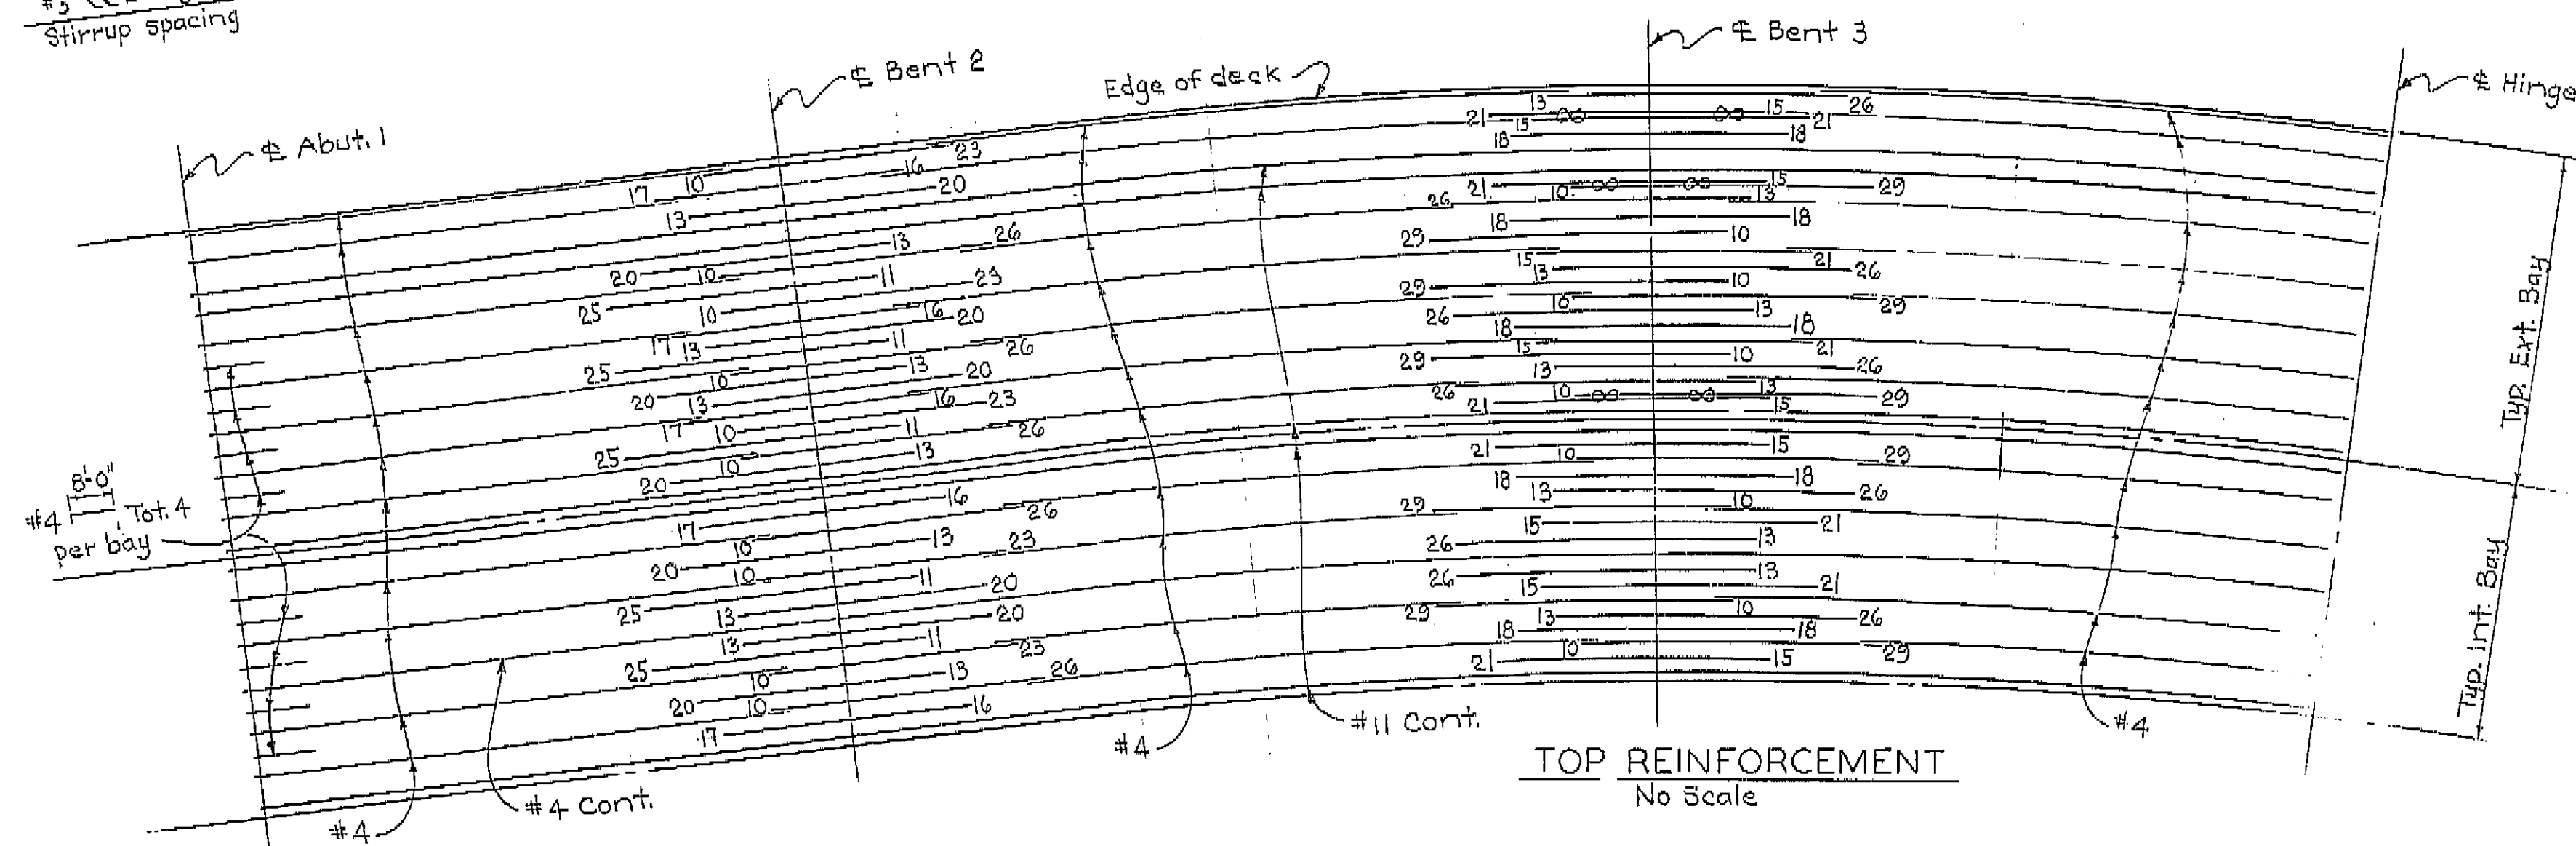 #5
Stirrup spacing
℄ Abut. 1
℄ Bent 2
Edge of deck
℄ Bent 3
℄ Hinge
17 10 23
16
13 20
13 26
20 10
11 23
25 10
16 20
17 13
11 26
25 10
13 20
20 13
16 23
17 10
11 26
25 10
13
20
16 26
17 10
13 23
20 10
11 20
25 13
20
13 11
25 23
10
13 26
20 10
16
17
13 15 26
21 15 21
18 18
21 15 29
10 13
26
18 18
29 10
15 21
13 26
29 10
10 29
26 13
18 18
15 21
29 10
13 26
26 10 13 29
21 15
21 15
10 29
18 18
13 26
29 10
15 21
26 13
26 13
15 21
29 10
13 26
18 18
10 29
21 15
8'-0"
#4 , Tot. 4
per bay
#4
#4 Cont.
#4
#11 Cont.
#4
Typ. Ext. Bay
Typ. Int. Bay
TOP REINFORCEMENT
No Scale